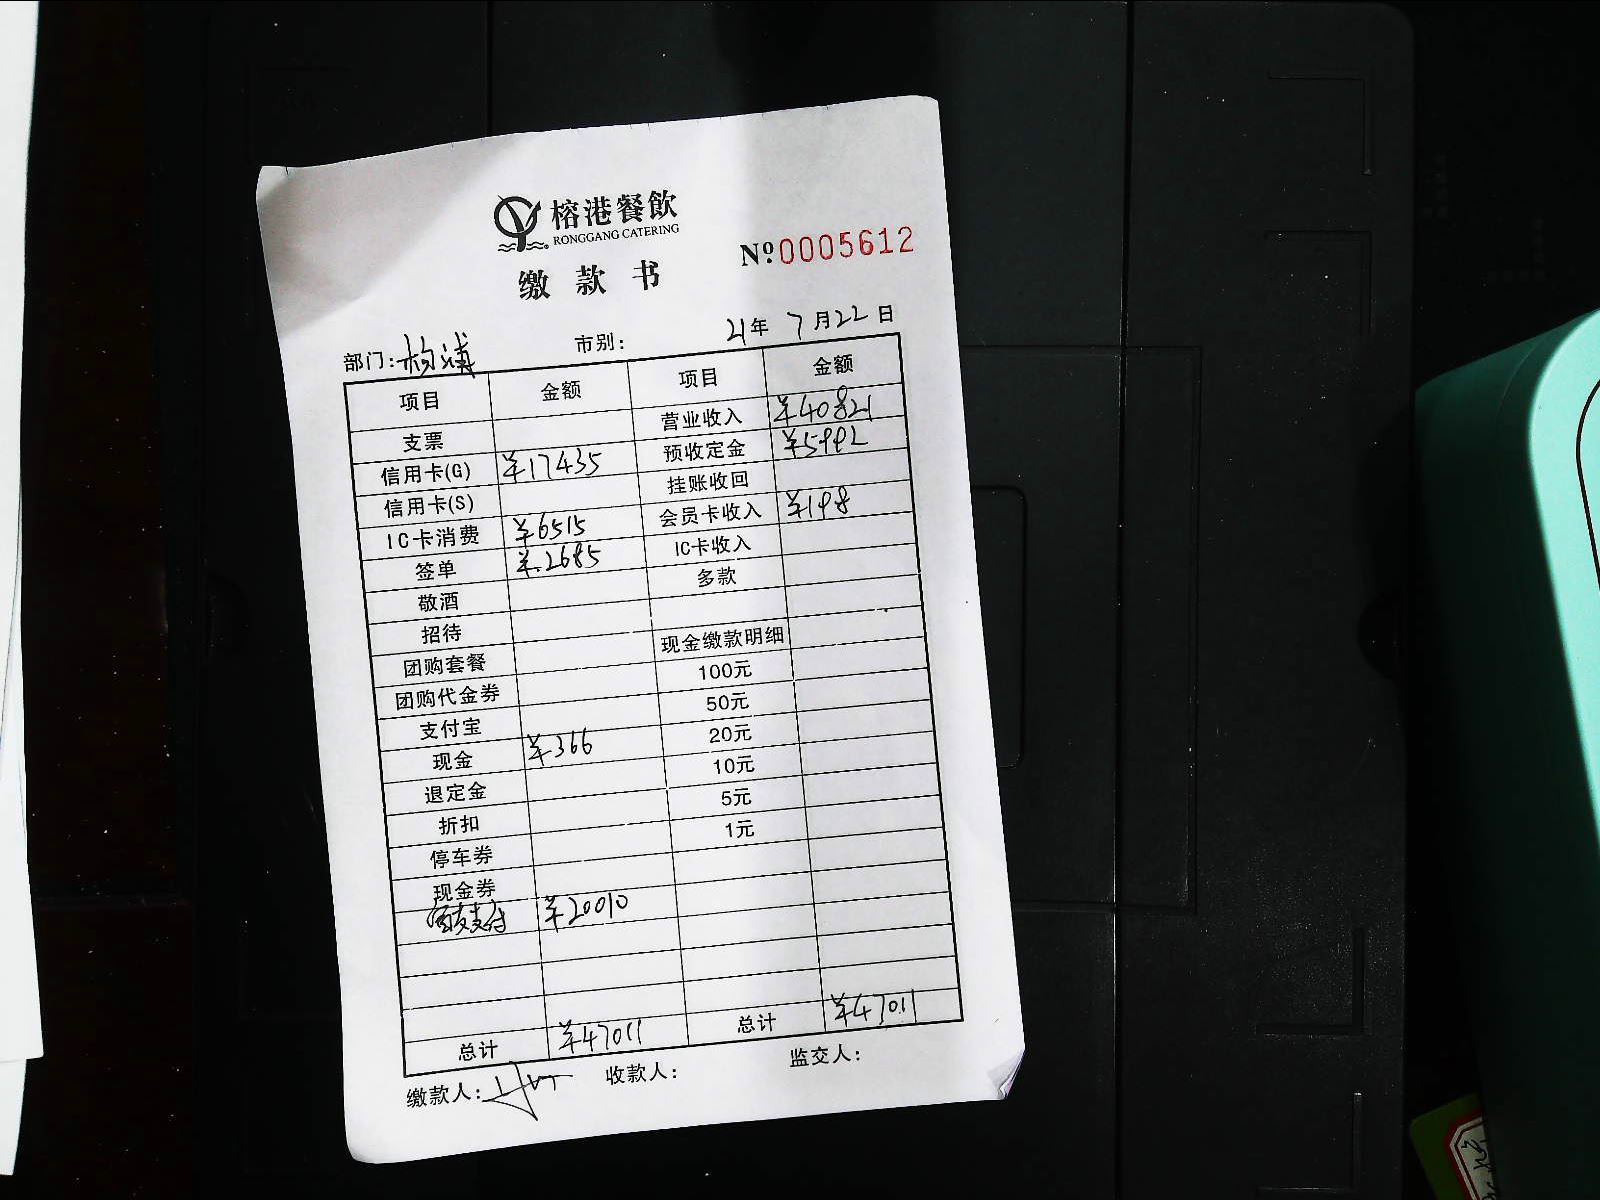 榕港餐飲
RONGGANG CATERING
缴款书
Nº0005612
部门：杨浦 市别： 21年 7月22日
项目 金额 项目 金额
支票 营业收入 ¥40821
信用卡(G) ¥17435 预收定金 ¥5992
信用卡(S) 挂账收回
IC卡消费 ¥6515 会员卡收入 ¥198
签单 ¥2685 IC卡收入
敬酒 多款
招待
团购套餐 现金缴款明细
团购代金券 100元
支付宝 50元
现金 ¥366 20元
退定金 10元
折扣 5元
停车券 1元
现金券
支付 ¥20010
总计 ¥47011 总计 ¥47011
缴款人： 收款人： 监交人：